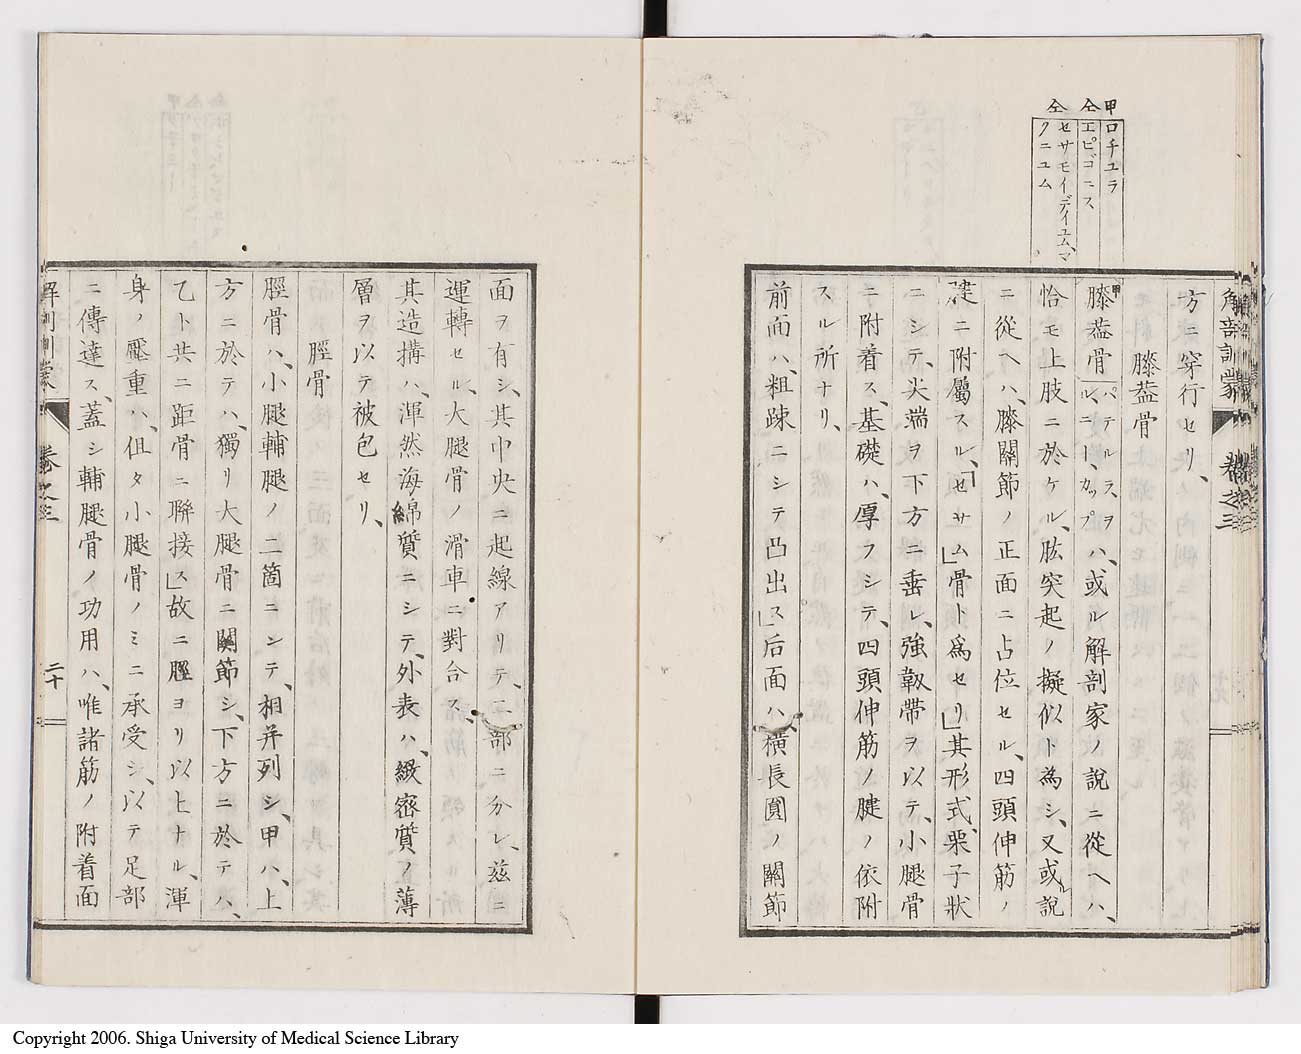 甲ロチユラ
仝エピゴニス
仝セサモイデイユム、マ
クニユム
解剖訓蒙 卷之三
方ニ穿行セリ、
膝蓋骨
甲膝蓋骨パテルラ、ヲルニー、カップハ、或ル解剖家ノ說ニ從ヘハ、
恰モ上肢ニ於ケル、肱突起ノ擬似ト為シ、又或ル說
ニ從ヘハ、膝關節ノ正面ニ占位セル、四頭伸筋ノ
腱ニ附屬スル、「セサム」骨ト爲セリ」其形式、栗子狀
ニシテ、尖端ヲ下方ニ垂レ、強靱帶ヲ以テ、小腿骨
ニ附着ス、基礎ハ、厚フシテ、四頭伸筋ノ腱ノ依附
スル所ナリ、
前面ハ、粗疎ニシテ凸出ス」后面ハ、橫長圓ノ關節
面ヲ有シ、其中央ニ起線アリテ、二部ニ分レ、兹ニ
運轉セル、大腿骨ノ滑車ニ對合ス、
其造搆ハ、渾然海綿質ニシテ、外表ハ、緻密質ノ薄
層ヲ以テ被包セリ、
脛骨
脛骨ハ、小腿輔腿ノ二箇ニシテ、相并列シ、甲ハ、上
方ニ於テハ、獨リ大腿骨ニ關節シ、下方ニ於テハ、
乙ト共ニ距骨ニ聯接ス」故ニ脛ヨリ以上ナル、渾
身ノ壓重ハ、但タ小腿骨ノミニ承受シ、以テ足部
ニ傳達ス、蓋シ輔腿骨ノ功用ハ、唯諸筋ノ附着面
解剖訓蒙 卷之三 二十
Copyright 2006. Shiga University of Medical Science Library